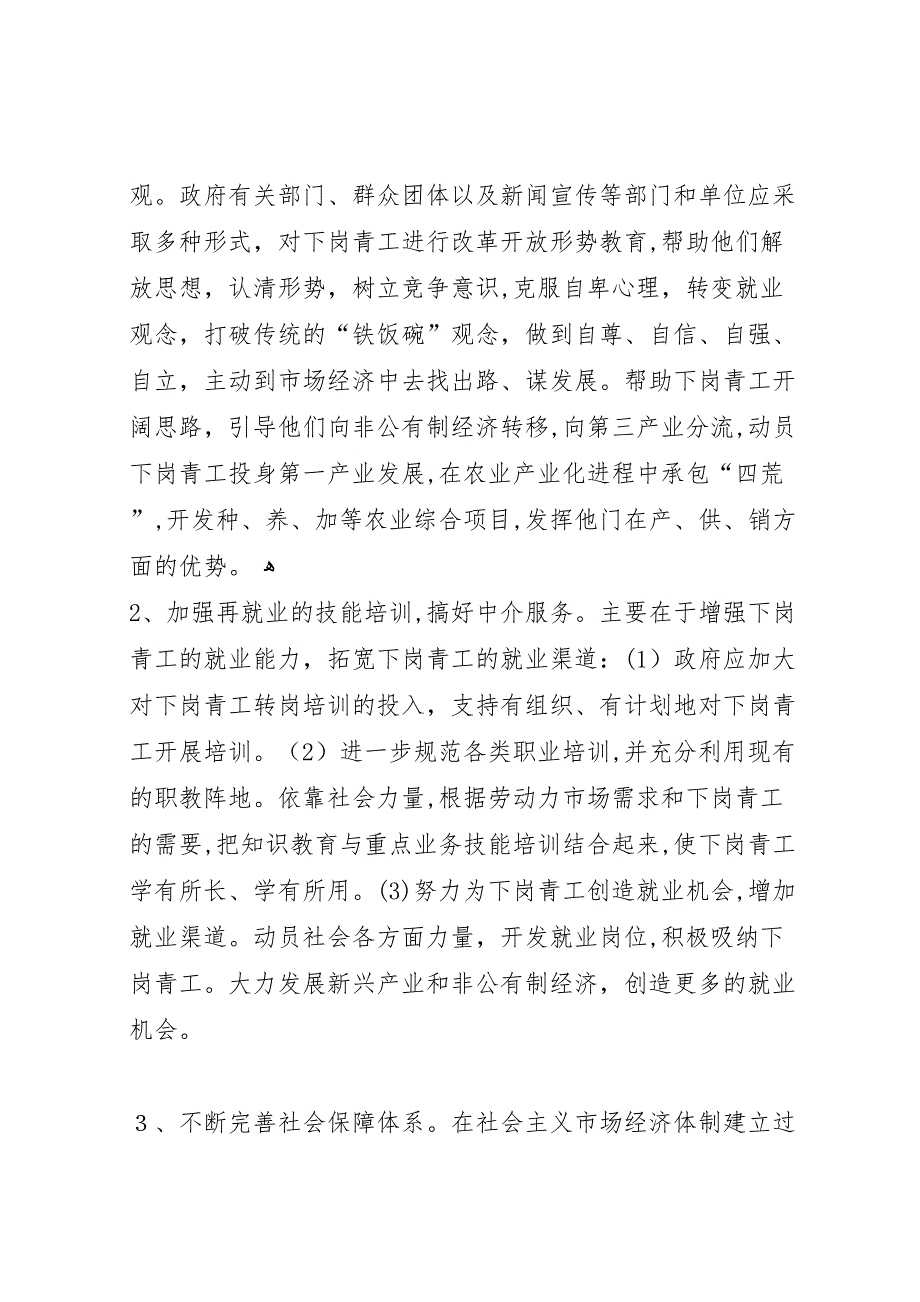 观。政府有关部门、群众团体以及新闻宣传等部门和单位应采
取多种形式，对下岗青工进行改革开放形势教育,帮助他们解
放思想，认清形势，树立竞争意识,克服自卑心理，转变就业
观念，打破传统的“铁饭碗”观念，做到自尊、自信、自强、
自立，主动到市场经济中去找出路、谋发展。帮助下岗青工开
阔思路，引导他们向非公有制经济转移,向第三产业分流,动员
下岗青工投身第一产业发展,在农业产业化进程中承包“四荒
”,开发种、养、加等农业综合项目,发挥他门在产、供、销方
面的优势。 ﻬ
2、加强再就业的技能培训,搞好中介服务。主要在于增强下岗
青工的就业能力，拓宽下岗青工的就业渠道：(1）政府应加大
对下岗青工转岗培训的投入，支持有组织、有计划地对下岗青
工开展培训。（2）进一步规范各类职业培训,并充分利用现有
的职教阵地。依靠社会力量,根据劳动力市场需求和下岗青工
的需要,把知识教育与重点业务技能培训结合起来,使下岗青工
学有所长、学有所用。(3)努力为下岗青工创造就业机会,增加
就业渠道。动员社会各方面力量，开发就业岗位,积极吸纳下
岗青工。大力发展新兴产业和非公有制经济，创造更多的就业
机会。
３、不断完善社会保障体系。在社会主义市场经济体制建立过